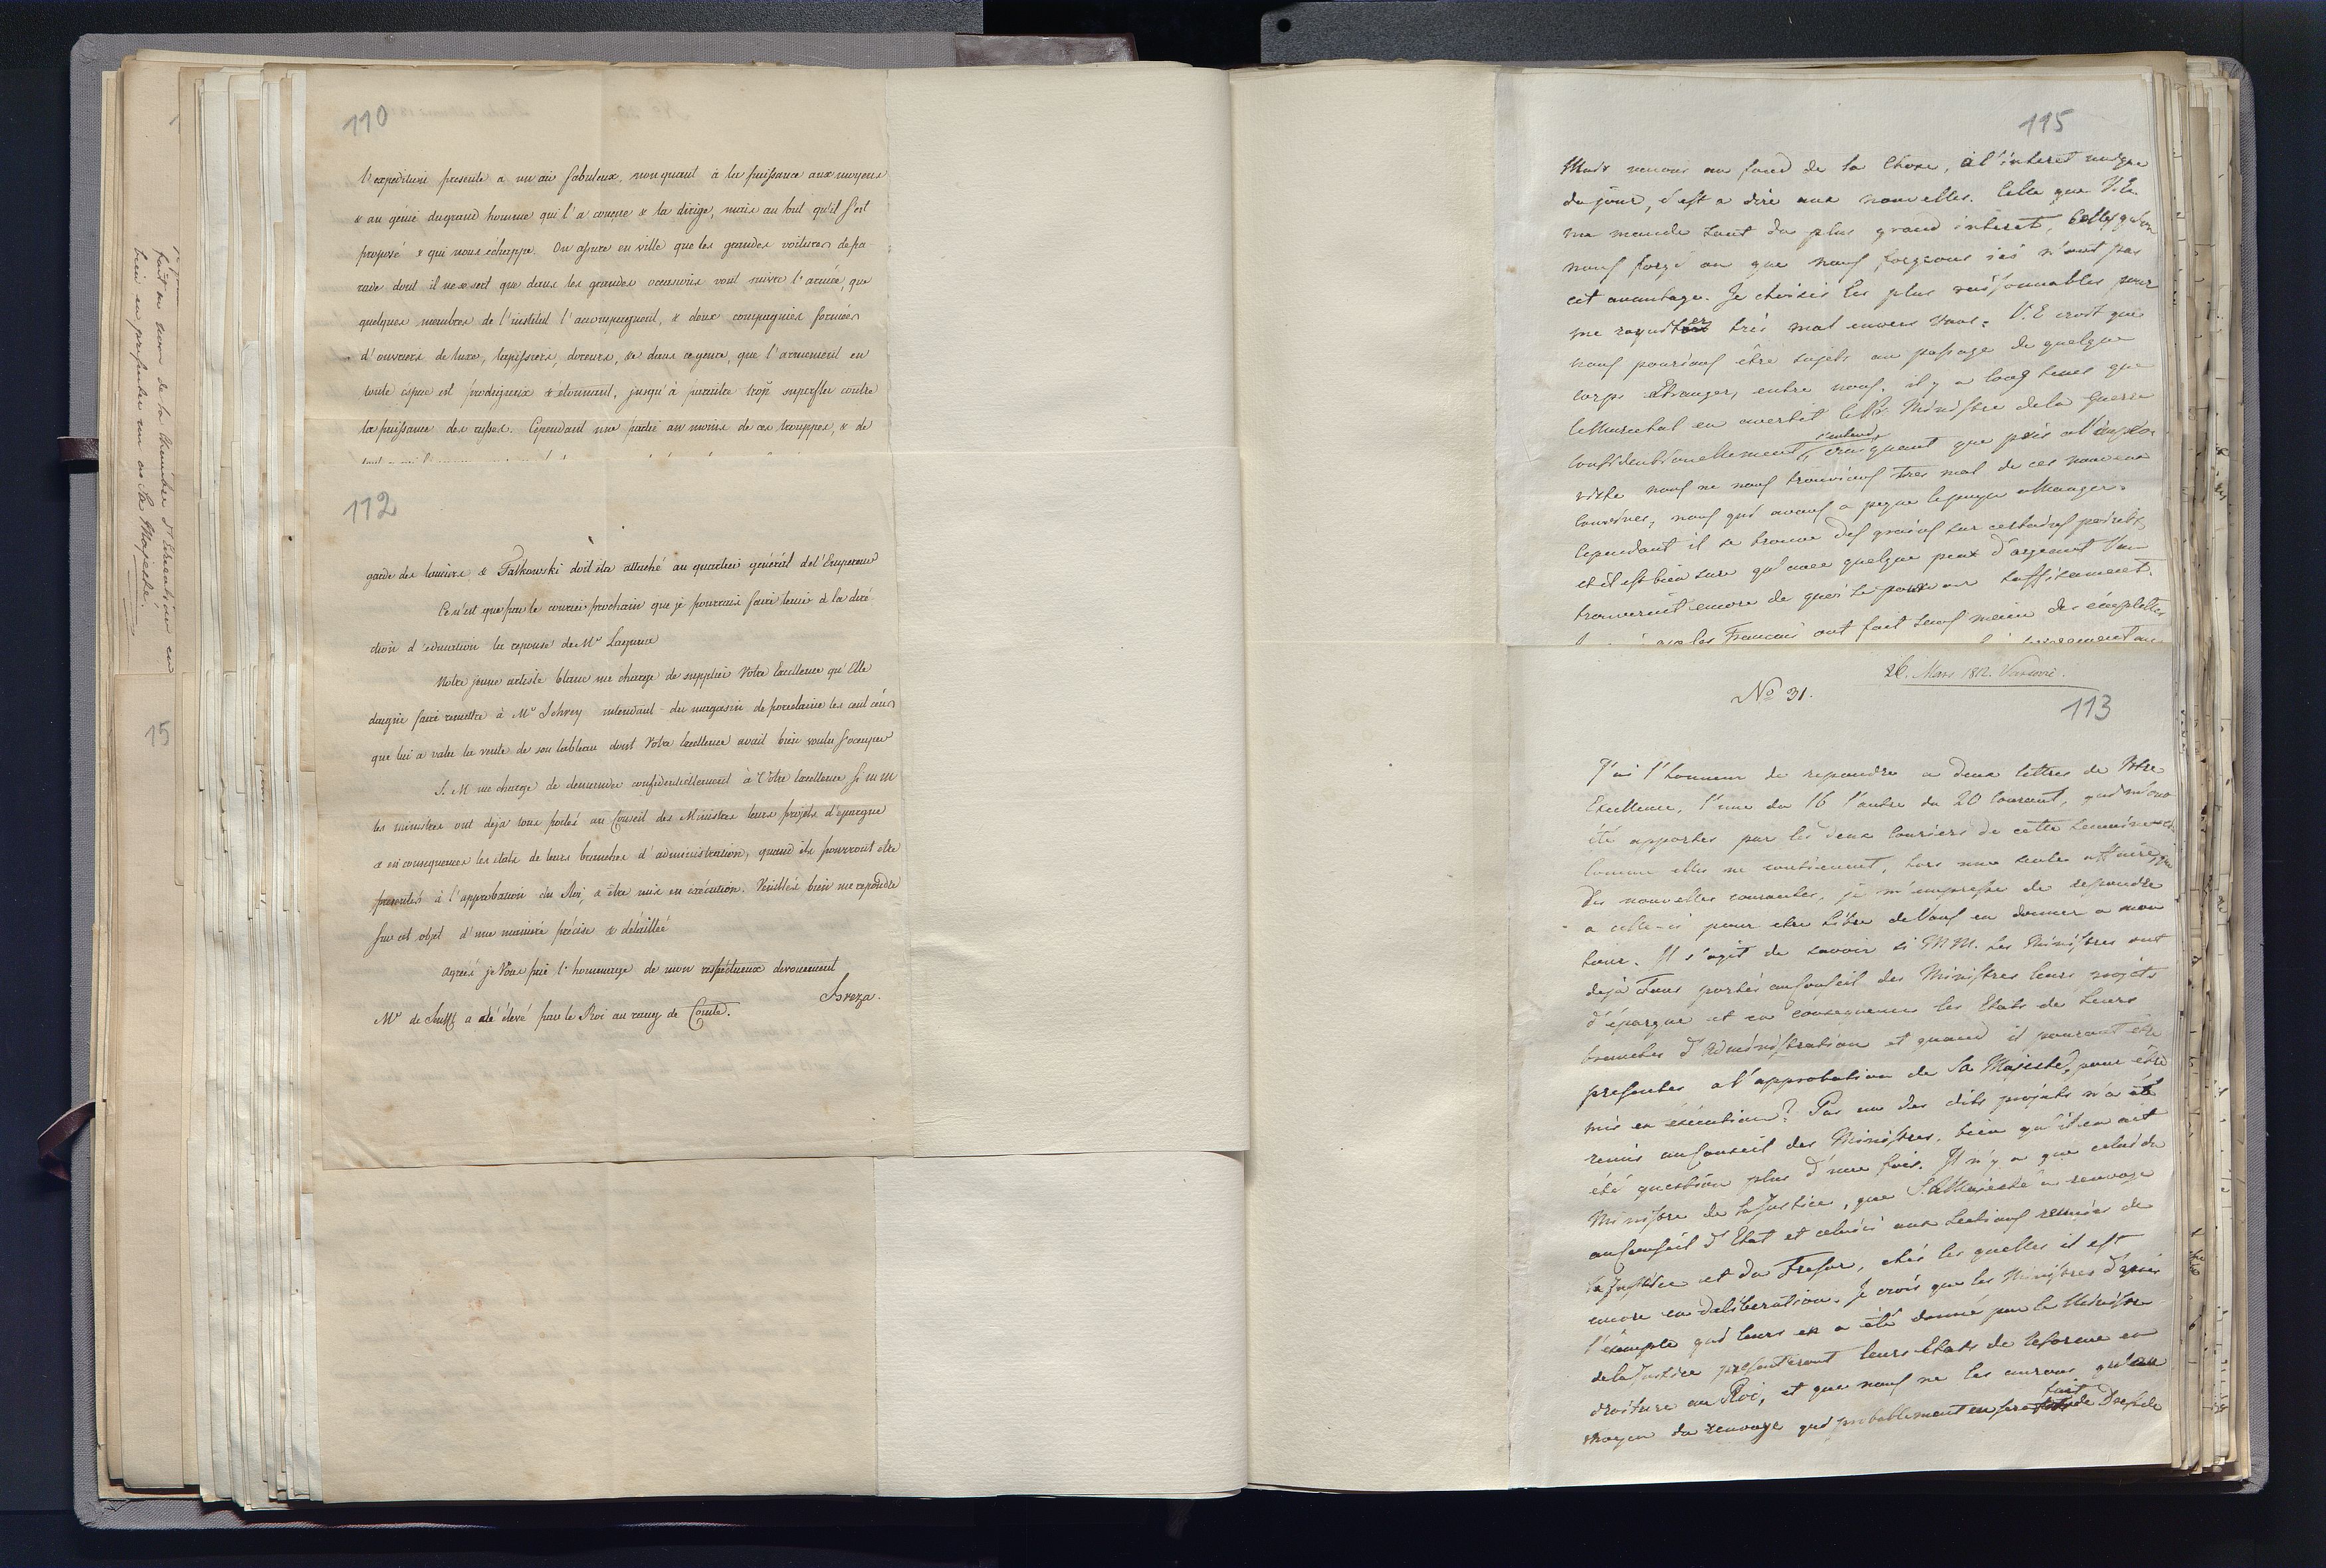 110
l'expédition presente a un air fabuleux, non quant à la puissance aux moyens
& au génie du grand homme qui l'a conçue & la dirige, mais au but qu'il s'est
proposé & qui nous échappe. On assure en ville que les grandes voitures de pa
rade dont il ne se sert que dans les grandes occasions vont suivre l'armée, que
quelques membres de l'institut l'accompagnent, & deux compagnies formées
d'ouvriers de luxe, tapissiers, doreurs, & dans ce genre, que l'armement en
toute espece est prodigieux & étonnant, jusqu'à paraitre trop superflu contre
la puissance des russes. Cependant une partie au moins de ces trouppes, & de
112
garde des lanciers & Paszkowski doit être attaché au quartier général de l'Empereur
Ce n'est que par le courier prochain que je pourrai faire tenir à la diré
ction d'éducation la reponse de Mr
Notre jeune artiste blanc me charge de supplier Votre Excellence qu'Elle
daigne faire remettre à Mr Schrey intendant du magasin de porcelaine les cent écus
que lui a valu la vente de son tableau dont Votre Excellence avait bien voulu s'occuper
S. M. me charge de demander confidentiellement à Votre Excellence si M M
les ministres ont deja tous portés au Conseil des Ministres leurs projets d'épargne
& en consequence les états de leurs branches d'administration, quand ils pourront etre
presentés à l'approbation du Roi, & être mis en exécution. Veuillés bien me repondre
sur cet objet d'une manière précise & détaillée
Agreés je Vous prie l'hommage de mon respectueux devouement
Breza.
Mr de Senfft a été élevé par le Roi au rang de Comte.
fait au nom de la Chambre d'Education en
bien en presenter un à Sa Majesté.
15
115
Mais venons au fond de la chose, à l'interet unique
du jour, c'est a dire aux nouvelles. Celle que V.E.
me mande sont du plus grand interet, celles qu'on
nous forge ou que nous forgeons ici n'ont pas
cet avantage. Je choisis les plus raisonnables pour
me raquitter très mal envers Vous. V.E croit que
nous pourions être sujets au passage de quelque
corps etranger, entre nous, il y a long tems que
le Marechal en avertit le Pr. Ministre de la guerre
confidentionellement, craignant que pris a l'impro
viste nous ne nous trouvions tres mal de ces nouveaux
convives, nous qui avons a peine de quoi manger.
Cependant il se trouve des grains sur certains points,
et il est bien sure qu'avec quelque peux d'argent l'on
trouveroit encore de quoi se pourvoir suffisament.
les Francais ont fait sous main des emplettes
26. Mars 1812. Varsovie.
No 31.
113
J'ai l'honneur de repondre a deux lettres de Votre
Excellence, l'une du 16 l'autre du 20 Courant, qui m'ont
été apportés par les deux Couriers de cette semaine
Comme elles ne contiennent, hors une seule affaire, que
des nouvelles courantes, je m'empresse de repondre
a celle-ci pour etre libre de Vous en donner a mon
tour. Il s'agit de savoir si MM. les Ministres ont
deja tous portés au Conseil des Ministres leurs projets
d'épargne et en consequence les Etats de leurs
branches d'Administration et quand il pouront être
presentes a l'approbation de Sa Majesté, pour être
mis en exécution? Pas un des dits projets n'a été
remis au Conseil des Ministres, bien qu'il en ait
été question plus d'une fois. Il n'y a que celui du
Ministre de la Justice, que Sa Majesté a renvoyé
au Conseil d'Etat et celui ci aux Sections reunies de
la Justice et du Tresor, chés les quelles il est
encore en deliberation. Je crois que les Ministres d'après
l'exemple qui leurs en a été donné par le Ministre
de la Justice presenteront leurs Etats de reforme en
droiture au Roi, et que nous ne les aurons qu'au
moyen du renvoye qui probablement en sera fait de Dresde